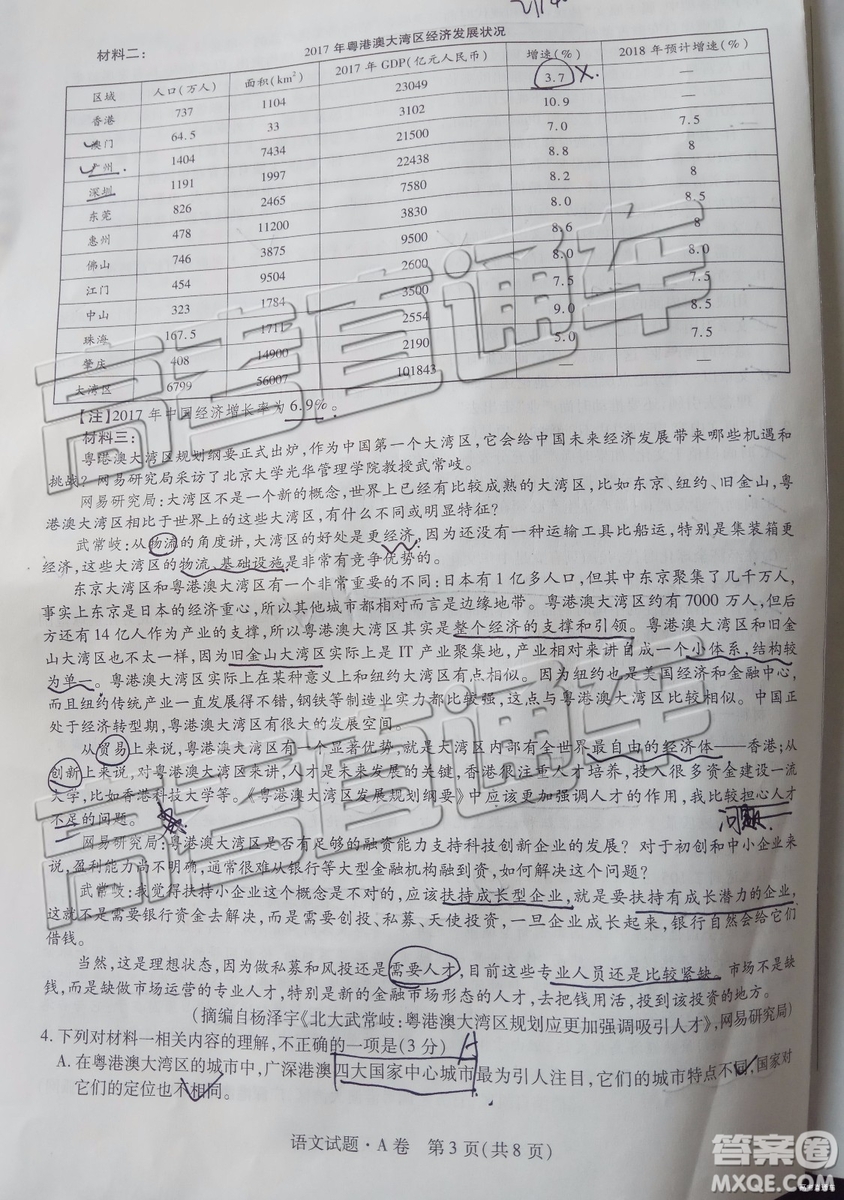 材料二:
2017年粤港澳大湾区经济发展状况
区域 人口(万人) 面积(km²) 2017年GDP(亿元人民币) 增速(%) 2018年预计增速(%)
香港 737 1104 23049 3.7 —
澳门 64.5 33 3102 10.9 —
广州 1404 7434 21500 7.0 7.5
深圳 1191 1997 22438 8.8 8
东莞 826 2465 7580 8.2 8
惠州 478 11200 3830 8.0 8.5
佛山 746 3875 9500 8.6 8
江门 454 9504 2600 8.0 8.0
中山 323 1784 3500 7.5 7.5
珠海 167.5 2554 9.0 8.5
肇庆 408 14900 2190 5.0 7.5
大湾区 6799 56007 101843 — —
【注】2017年中国经济增长率为6.9%。
材料三:
粤港澳大湾区规划纲要正式出炉,作为中国第一个大湾区,它会给中国未来经济发展带来哪些机遇和
挑战?网易研究局采访了北京大学光华管理学院教授武常岐。
网易研究局:大湾区不是一个新的概念,世界上已经有比较成熟的大湾区,比如东京、纽约、旧金山,粤
港澳大湾区相比于世界上的这些大湾区,有什么不同或明显特征?
武常岐:从物流的角度讲,大湾区的好处是更经济,因为还没有一种运输工具比船运,特别是集装箱更
经济,这些大湾区的物流、基础设施是非常有竞争优势的。
东京大湾区和粤港澳大湾区有一个非常重要的不同:日本有1亿多人口,但其中东京聚集了几千万人,
事实上东京是日本的经济重心,所以其他城市都相对而言是边缘地带。粤港澳大湾区约有7000万人,但后
方还有14亿人作为产业的支撑,所以粤港澳大湾区其实是整个经济的支撑和引领。粤港澳大湾区和旧金
山大湾区也不太一样,因为旧金山大湾区实际上是IT产业聚集地,产业相对来讲自成一个小体系,结构较
为单一。粤港澳大湾区实际上在某种意义上和纽约大湾区有点相似。因为纽约也是美国经济和金融中心,
而且纽约传统产业一直发展得不错,钢铁等制造业实力都比较强,这点与粤港澳大湾区比较相似。中国正
处于经济转型期,粤港澳大湾区有很大的发展空间。
从贸易上来说,粤港澳大湾区有一个显著优势,就是大湾区内部有全世界最自由的经济体——香港;从
创新上来说,对粤港澳大湾区来讲,人才是未来发展的关键,香港很注重人才培养,投入很多资金建设一流
大学,比如香港科技大学等。《粤港澳大湾区发展规划纲要》中应该更加强调人才的作用,我比较担心人才
不足的问题。
问题
网易研究局:粤港澳大湾区是否有足够的融资能力支持科技创新企业的发展?对于初创和中小企业来
说,盈利能力尚不明确,通常很难从银行等大型金融机构融到资,如何解决这个问题?
武常岐:我觉得扶持小企业这个概念是不对的,应该扶持成长型企业,就是要扶持有成长潜力的企业,
这就不是需要银行资金去解决,而是需要创投、私募、天使投资,一旦企业成长起来,银行自然会给它们
借钱。
当然,这是理想状态,因为做私募和风投还是需要人才,目前这些专业人员还是比较紧缺。市场不是缺
钱,而是缺做市场运营的专业人才,特别是新的金融市场形态的人才,去把钱用活,投到该投资的地方。
(摘编自杨泽宇《北大武常岐:粤港澳大湾区规划应更加强调吸引人才》,网易研究局)
4.下列对材料一相关内容的理解,不正确的一项是(3分) A
A.在粤港澳大湾区的城市中,广深港澳四大国家中心城市最为引人注目,它们的城市特点不同,国家对
它们的定位也不相同。
语文试题·A卷 第3页(共8页)
高考直通车
高考直通车
答案圈
MXQE.COM